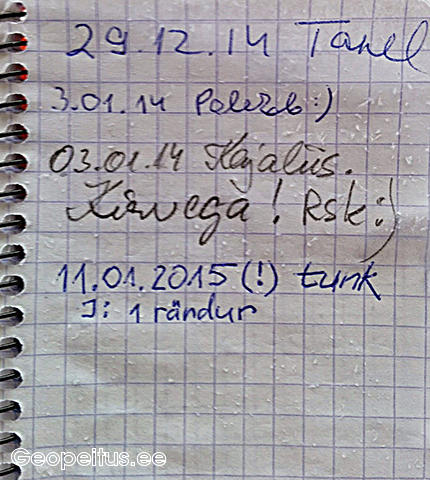 29.12.14 Tanel
3.01.14 :)
03.01.14 Kajaliis.
Kirvega! Rsk:)
11.01.2015(!) tunk
J: 1 rändur
Geopeitus.ee